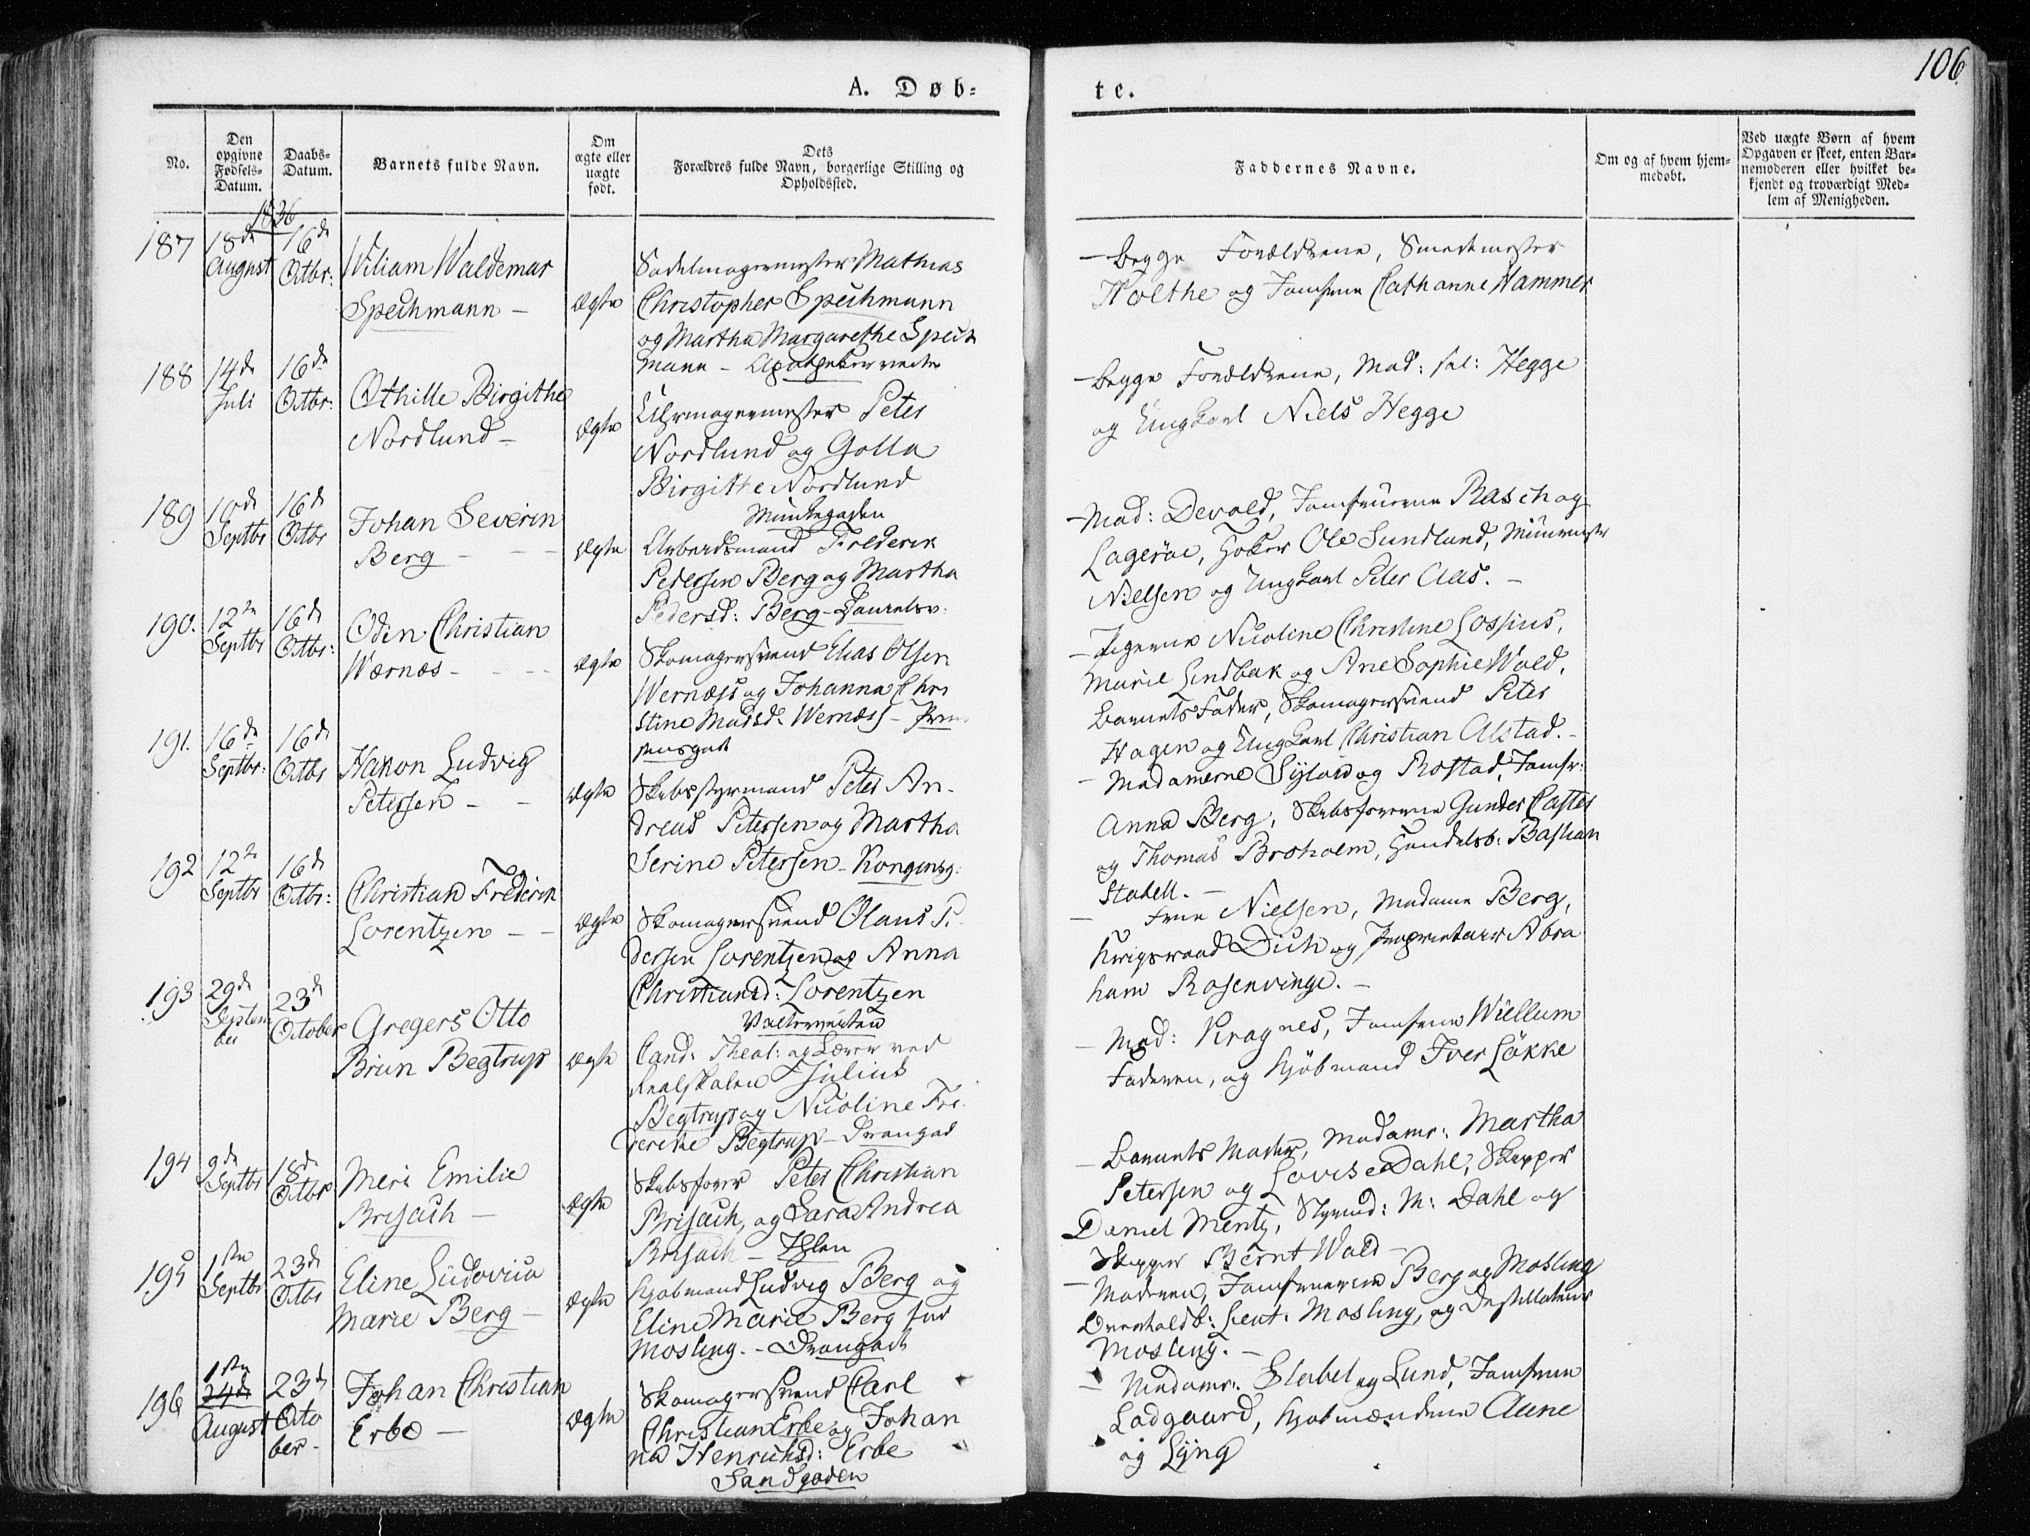 106.
A. Døb=
te.
No.
Den opgivne Fødsels-Datum.
Daabs-Datum.
Barnets fulde Navn.
Om ægte eller uægte født.
Dets Forældres fulde Navn, borgerlige Stilling og Opholdssted.
Faddernes Navne.
Om og af hvem hjemmedøbt.
Ved uægte Børn af hvem Opgaven er skeet, enten Barnemoderen eller hvilket bekjendt og troværdigt Medlem af Menigheden.
1836
187 18de August 16de Octbr: Wiliam Waldemar
Spechmann –
Ægte
Sadelmagermester Mathias
Christopher Spechmann
og Martha Margarethe Spech
mann –
– Begge Forældrene, Smedemester
Holthe og Jomfrue Cathanne Hammer
188 14de Juli 16de Octbr: Othille Birgithe
Nordlund –
Ægte
Uhrmagermester Peter
Nordlund og Golla
Birgithe Nordlund
Munkegaden
– Begge Forældrene, Mad: Hegge
og Ungkarl Niels Hegge
189 10de Septbr 16de Octbr Johan Severin
Berg – – –
Ægte
Arbeidsmand Frederik
Pedersen Berg og Martha
Pedersd: Berg –
– Mad: Devold, Jomfruerne Rasch og
Lagerøe, Høker Ole Sundlund, Muurmester
Nielsen og Ungkarl Peter Aas. –
190. 12te Septbr 16de Octbr: Oden Christian
Wærnæs – – –
Ægte
Skomagersvend Elias Olsen
Wernæss og Johanna Chri
stine Madsd. Wernæss – Prin
sensgade
– Pigerne Nicoline Christine Lossius,
Marie Lindbak og Ane Sophie Wold,
Barnets Fader, Skomagersvend Peter
Hagen og Ungkarl Christian Alstad. –
191. 16de Septbr: 16de Octbr Hakon Ludvig
Petersen – –
Ægte
Skibsstyrmand Peter An-
dreas Petersen og Martha
Serine Petersen – Kongensg:
– Madamerne Sylow og Rostad, Jomfr:
Anna Berg, Skibsførerne Gunder Casten
og Thomas Broholm, Handelsb: Bastian
Stabell. –
192 12te Septbr 16de Octbr: Christian Frederik
Lorentzen – –
Ægte
Skomagersvend Olaus P.
dersen Lorentzen og Anna
Christiansd: Lorentzen
– Frue Nielsen, Madame Berg,
Krigsraad Dich og Proprietair Abra
ham Rosenvinge. –
193 29de September 23de October Gregers Otto
Brun Begtrup
Ægte
Cand: Theol: og Lærer ved
Realskolen Julius
Begtrup og Nicoline Fre
derikke Begtrup – Drongad
– Mad: Kragnes, Jomfrue Wiellum
Faderen, og Kjøbmand Iver Løkke
194 9de Septbr 18de Octbr Meri Emilie
Brisach –
Ægte
Skibsfører Peter Christian
Brisach, og Sara Andrea
Brisach – Ihlen
– Barnets Moder, Madame: Martha
Petersen og Lovise Dahl, Skipper
Daniel Mentz, Styrmd: M: Dahl og
Skipper Bernt Wold –
195 1ste Septbr 23de Octbr Eline Ludovica
Marie Berg –
Ægte
Kjøbmand Ludvig Berg og
Eline Marie Berg fød
Mosling. – Drongade
– Moderen, Jomfruerne Berg og Mosling
Overholdb: Lieut. Mosling, og Destillateur
Mosling. –
196 1ste 24de August 23de October Johan Christian
Erbe –
Ægte
Skomagersvend Carl
Christian Erbe og Johan
na Henrichsd: Erbe
Sandgaden
– Madame: Slabel og Lund, Jomfrue
Lodgaard, Kjøbmændene Aune
og Lyng